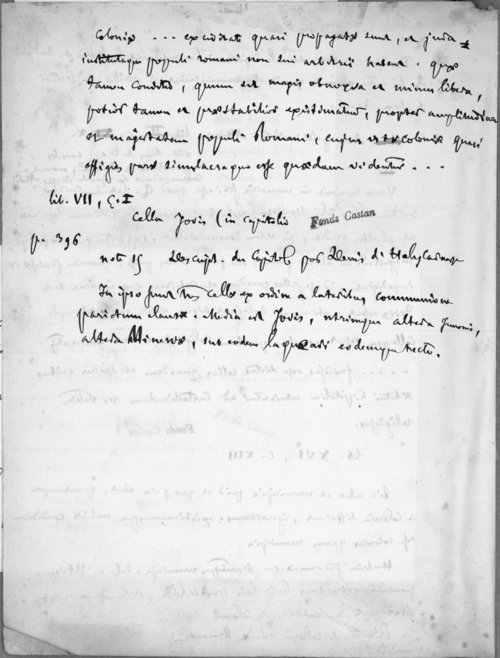 Coloniæ ... ex civitate quasi propagatæ sunt, et jura
institutaque populi romani non sui arbitrii habent. quæ
tamen conditio, quum sit magis obnoxia et minus libera,
potior tamen et præstabilior existimatur, propter amplitudinem
et majestatem populi Romani, cujus istæ coloniæ quasi
effigies parvæ simulacraque esse quædam videntur ...
lib. VII, c. I
Cella Jovis (in Capitolio
Fonds Castan
p. 396
not 15 Descript. du Capitole par Denis d'Halycarnasse
In ipso sunt tres cellæ ex ordine a lateribus communium
parietum clausæ. Media est Jovis, utrimque altera Junonis,
altera Minervæ, sub eodem laqueari eodemque tecto.